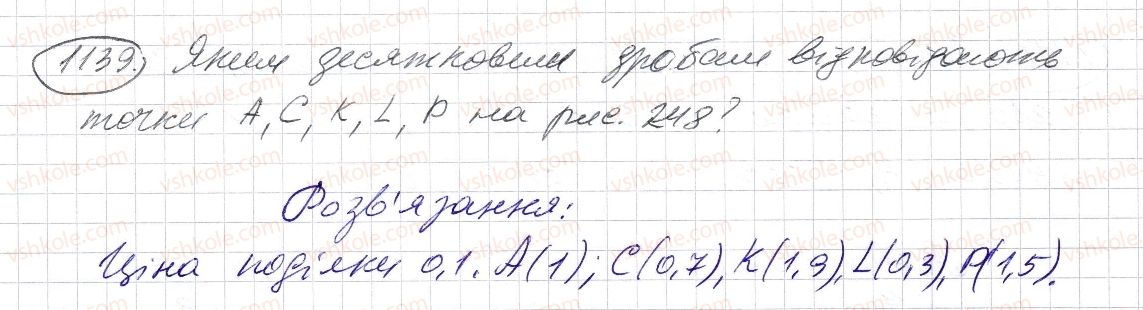 1139. Яким десятковим дробам відповідають
точки A, C, K, L, P на рис. 248?
Розв'язання:
Ціна поділки 0,1. A(1); C(0,7), K(1,9), L(0,3), P(1,5).